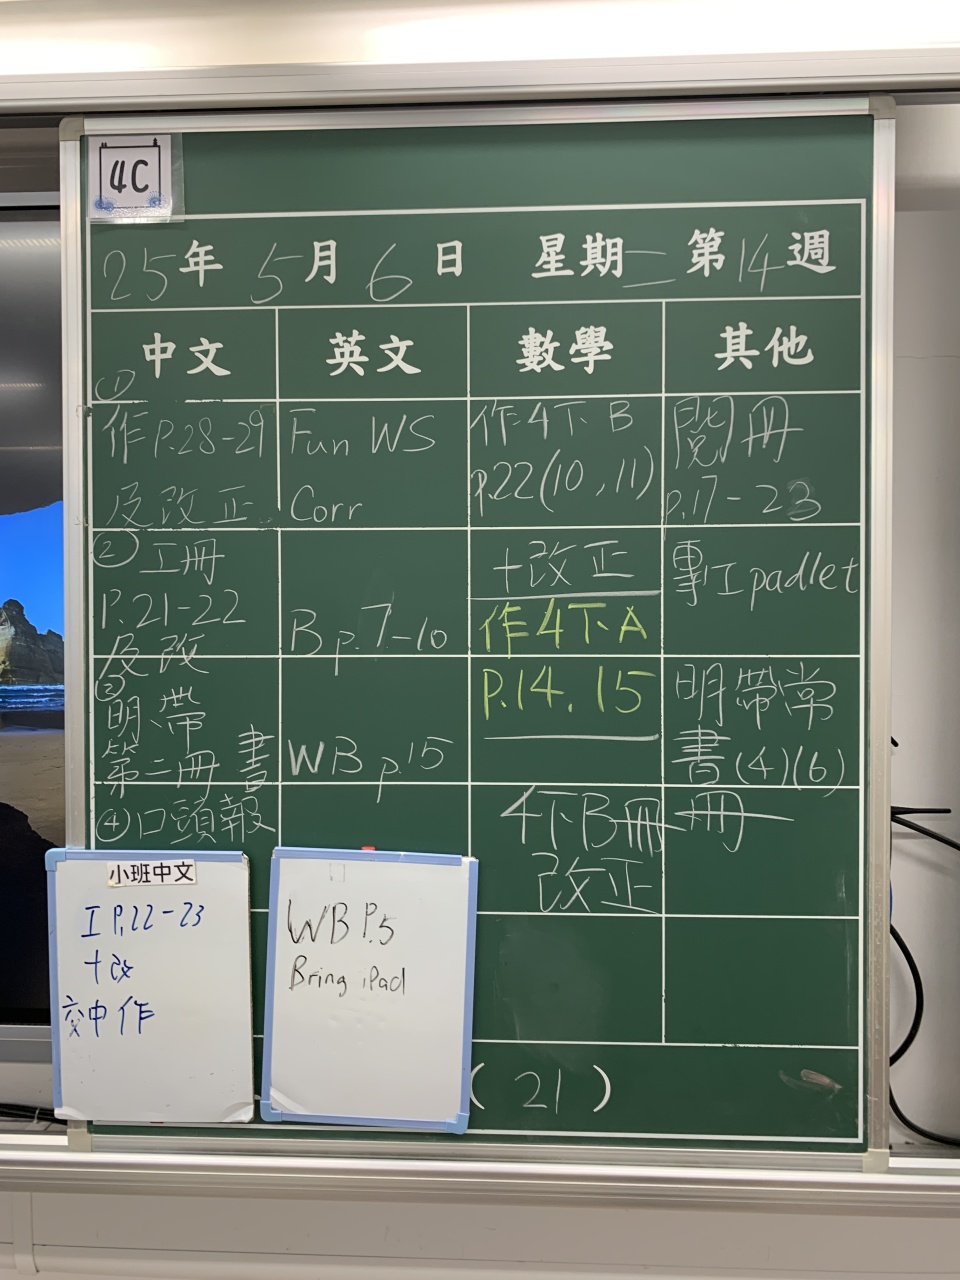 4C
25年 5月 6日 星期二 第14週
中文
①
作P.28-29
及改正
②工冊
P.21-22
及改
③
明、帶
第二冊書
④口頭報
英文
Fun WS
Corr
B p.7-10
WB p.15
數學
作4下B
p.22(10,11)
+改正
作4下A
P.14.15
4下B冊
改正
其他
閱冊
p.17-23
專工padlet
明帶常
書(4)(6)
冊
小班中文
工 P.22-23
+改
交中作
WB P.5
Bring iPad
(21)